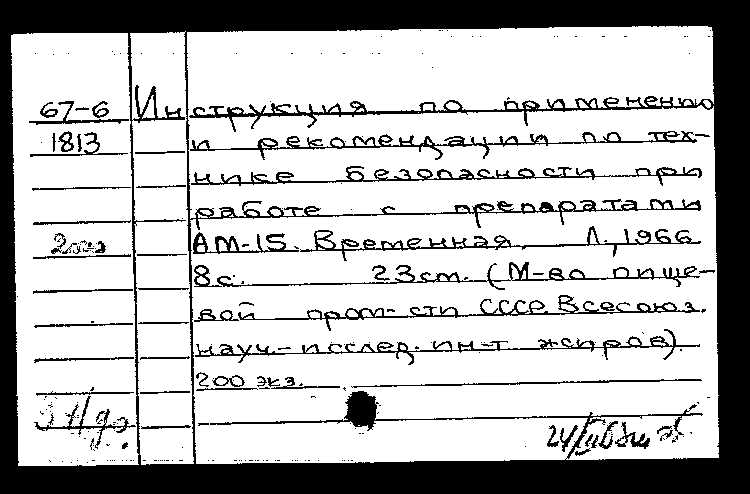 67-6 Инструкция по применению
1813 и рекомендации по тех-
нике безопасности при
работе с препаратами
АМ-15. Временная. Л., 1966
8с. 23см. (М-во пище-
вой пром-сти СССР. Всесоюз.
науч.-исслед. ин-т жиров).
200 экз.